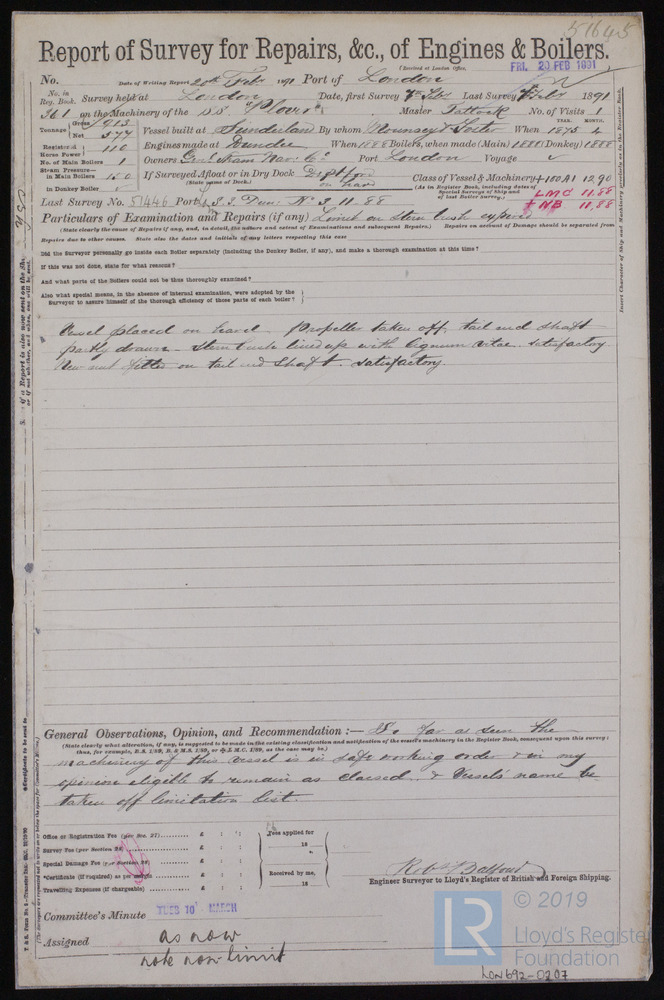 51645
Report of Survey for Repairs, &c., of Engines & Boilers.
(Received at London Office, FRI. 20 FEB 1891
No. Date of Writing Report 20th Feb 1891 Port of London
No. in Reg. Book. Survey held at London Date, first Survey Feb Last Survey Feb 1891
361 on the Machinery of the SS "Plover" Master No. of Visits 1
Tonnage Gross 915 Net 577 Vessel built at Sunderland By whom Mounsey & Foster When 1875 4
YEAR. MONTH.
Registered Horse Power 110 Engines made at Dundee When 1888 Boilers, when made (Main) 1888 (Donkey) 1888
No. of Main Boilers 1 Owners Genl Steam Nav. Co. Port London Voyage
Steam Pressure in Main Boilers 150 If Surveyed Afloat or in Dry Dock Deptford
(State name of Dock.) on hard
Class of Vessel & Machinery +100A1 12.90
(As in Register Book, including dates of Special Surveys of Ship and of last Boiler Survey.)
LMC 11.88
+ NB 11.88
in Donkey Boiler
Last Survey No. 51446 Port
Particulars of Examination and Repairs (if any) Limit on stern bush expired
(State clearly the cause of Repairs if any, and, in detail, the nature and extent of Examinations and subsequent Repairs.) Repairs on account of Damage should be separated from
Repairs due to other causes. State also the dates and initials of any letters respecting this case
Did the Surveyor personally go inside each Boiler separately (including the Donkey Boiler, if any), and make a thorough examination at this time?
If this was not done, state for what reasons?
And what parts of the Boilers could not be thus thoroughly examined?
Also what special means, in the absence of internal examination, were adopted by the
Surveyor to assure himself of the thorough efficiency of those parts of each boiler?
Vessel placed on hard. Propeller taken off, tail end shaft
partly drawn. Stern bush lined up with lignum vitae. satisfactory
New nut fitted on tail end shaft. satisfactory.
General Observations, Opinion, and Recommendation :— So far as seen the
(State clearly what alteration, if any, is suggested to be made in the existing classification and notification of the vessel's machinery in the Register Book, consequent upon this survey:
thus, for example, B.S. 1/89, B. & M.S. 1/89, or L.M.C. 1/89, as the case may be.)
machinery of this vessel is in safe working order & in my
opinion eligible to remain as classed. & Vessels name be
taken off limitation list.
Office or Registration Fee (per Sec. 27)......... £ : :
Survey Fee (per Section 28)......... £ : :
Special Damage Fee (per Section 28)......... £ : :
*Certificate (if required) as per margin......... £ : :
Travelling Expenses (if chargeable)......... £ : :
Fees applied for
18
Received by me,
18
Robt Balfour
Engineer Surveyor to Lloyd's Register of British and Foreign Shipping.
Committee's Minute TUES 10 MARCH
Assigned as now
note now limit
LR © 2019
Lloyd's Register
Foundation
LON692-0207